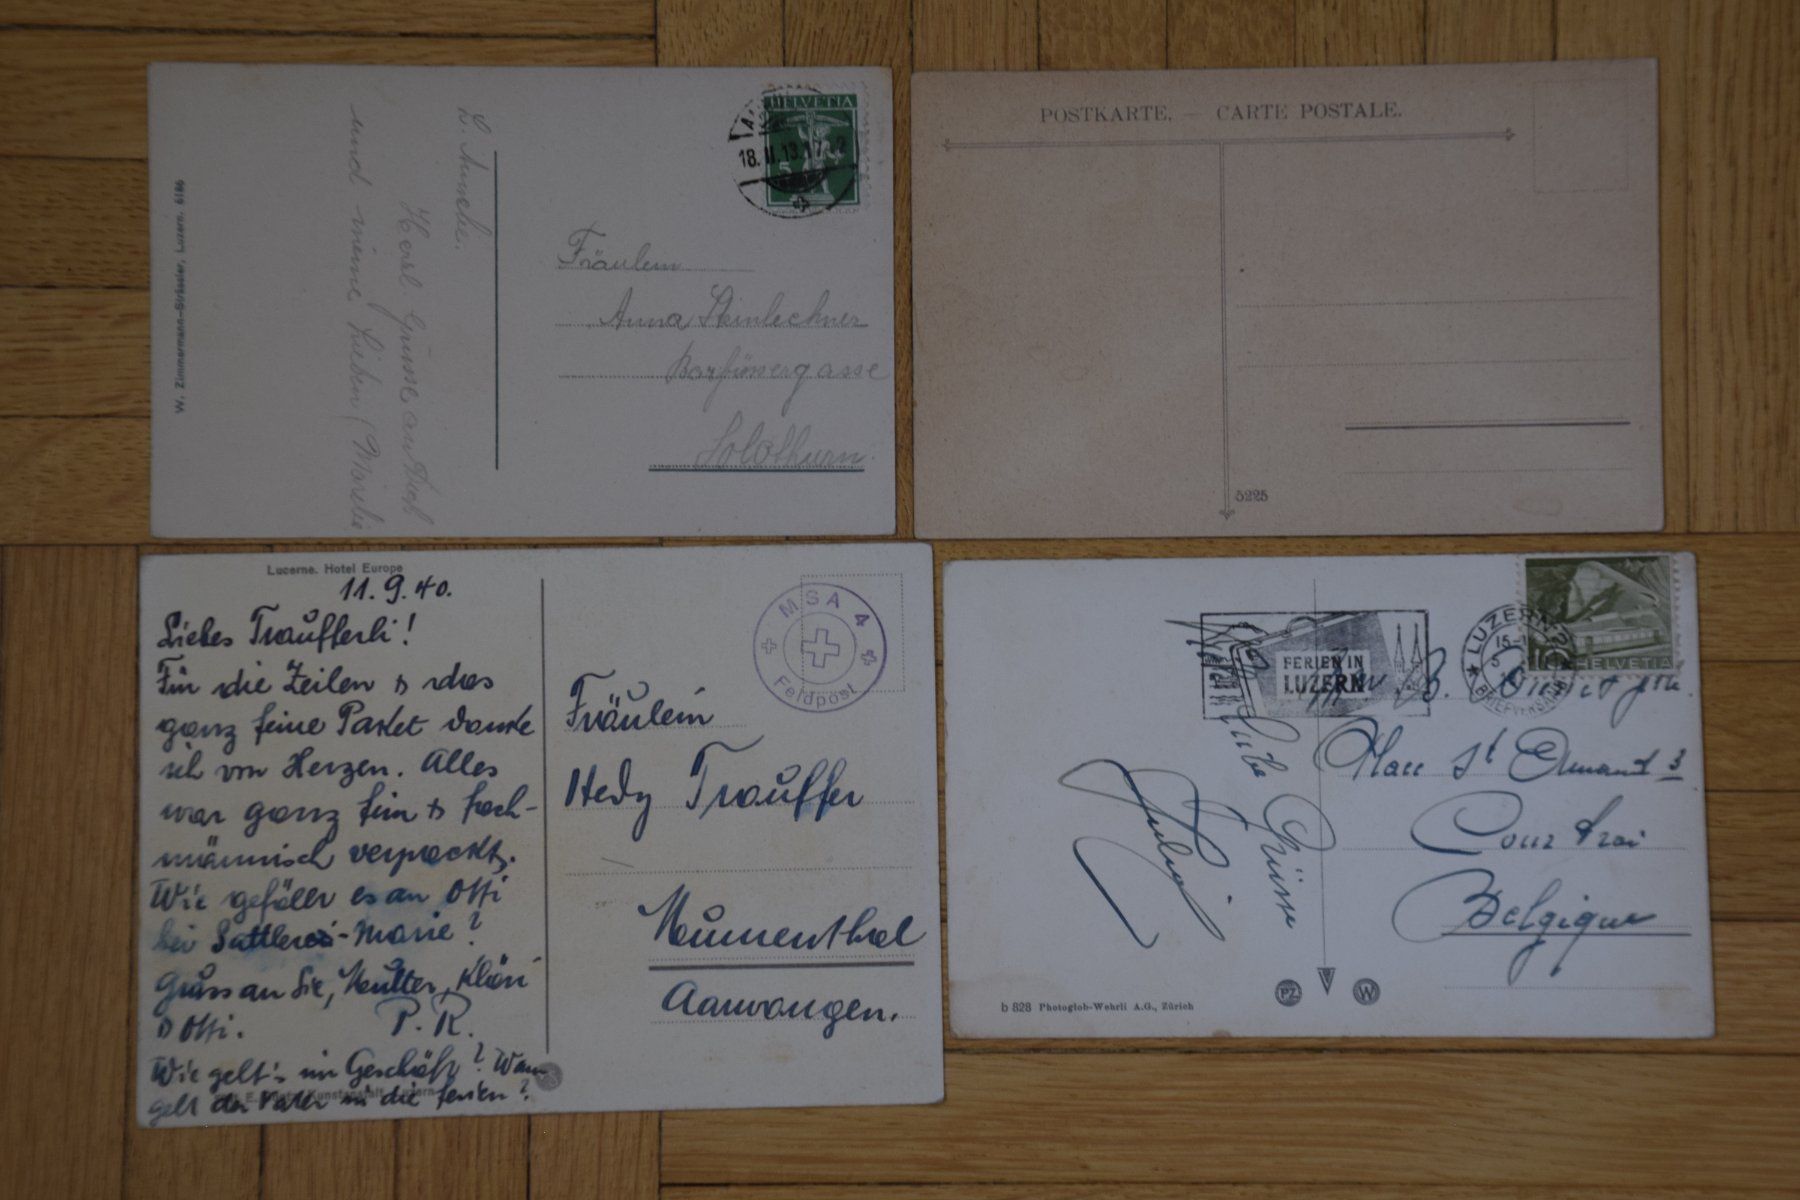 HELVETIA
18. 13. 
5
Fräulein
Anna Steinlechner
Barfüssergasse
Solothurn.
L.
Herzl. Grüsse an Dich
und meine Lieben
W. Zimmermann-Strässler, Luzern. 6186
POSTKARTE. — CARTE POSTALE.
5225
Lucerne. Hotel Europe
11. 9. 40.
Liebes Traufferli!
Für die Zeilen & das
ganz feine Paket danke
ich von Herzen. Alles
war ganz fein & fach-
männisch verpackt.
Wie gefällt es an Otti
bei Sattlers-Marie?
Gruss an Sie, Mutter, Kläri
& Otti. P. R.
Wie geht's im Geschäft? Wann
geht der Vater in die Ferien?
MSA 4
Feldpost
Fräulein
Hedy Trauffer
Mumenthal
Aarwangen.
FERIEN IN
LUZERN
LUZERN 2
BRIEFVERSAND
HELVETIA
10
B.
Place St Amand 3
Courtrai
Belgique
Liebe Grüsse
b 828 Photoglob-Wehrli A.G., Zürich
PZ
W